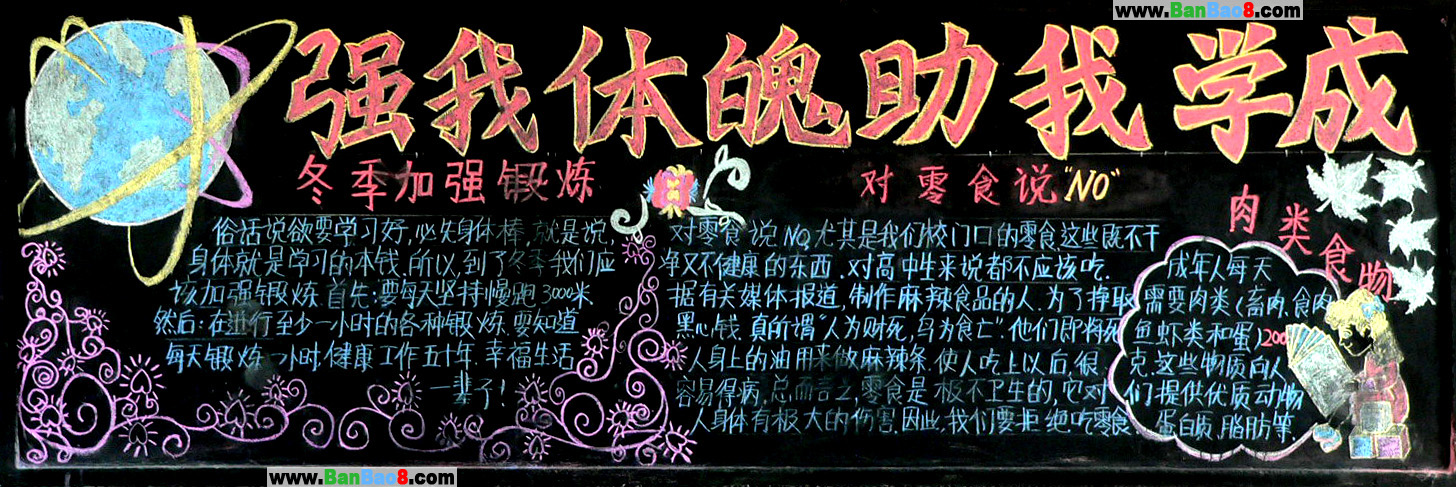 www.BanBao8.com
强我体魄助我学成
冬季加强锻炼
俗话说欲要学习好,必先身体棒,就是说,
身体就是学习的本钱.所以,到了冬季我们应
该加强锻炼.首先:要每天坚持慢跑3000米
然后:在进行至少一小时的各种锻炼.要知道
每天锻炼一小时,健康工作五十年,幸福生活
一辈子!
对零食说"NO"
对零食说NO,尤其是我们校门口的零食,这些既不干
净又不健康的东西.对高中生来说都不应该吃.
据有关媒体报道,制作麻辣食品的人.为了挣取
黑心钱.真所谓"人为财死,鸟为食亡".他们即将死
人身上的油用来做麻辣条.使人吃上以后,很
容易得病,总而言之,零食是极不卫生的,它对
人身体有极大的伤害.因此,我们要拒绝吃零食
肉类食物
成年人每天
需要肉类(畜肉、食肉
鱼虾类和蛋)200
克.这些物质向人
们提供优质动物
蛋白质、脂肪等.
www.BanBao8.com